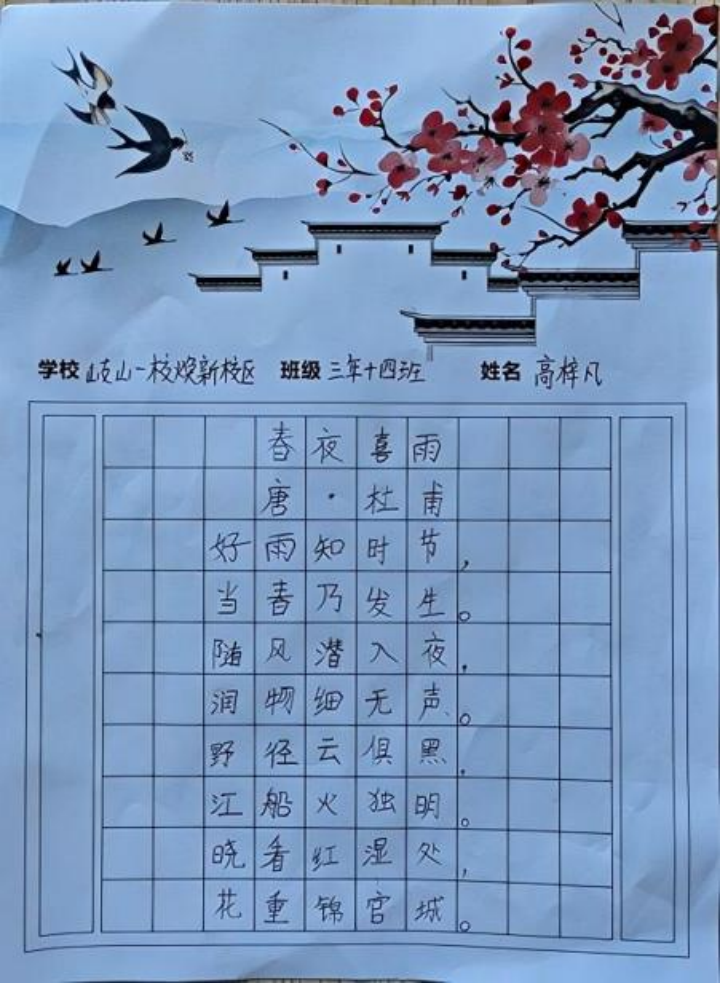 学校 岐山一校焕新校区 班级 三年十四班 姓名 高梓凡
春夜喜雨
唐·杜甫
好雨知时节，
当春乃发生。
随风潜入夜，
润物细无声。
野径云俱黑，
江船火独明。
晓看红湿处，
花重锦官城。